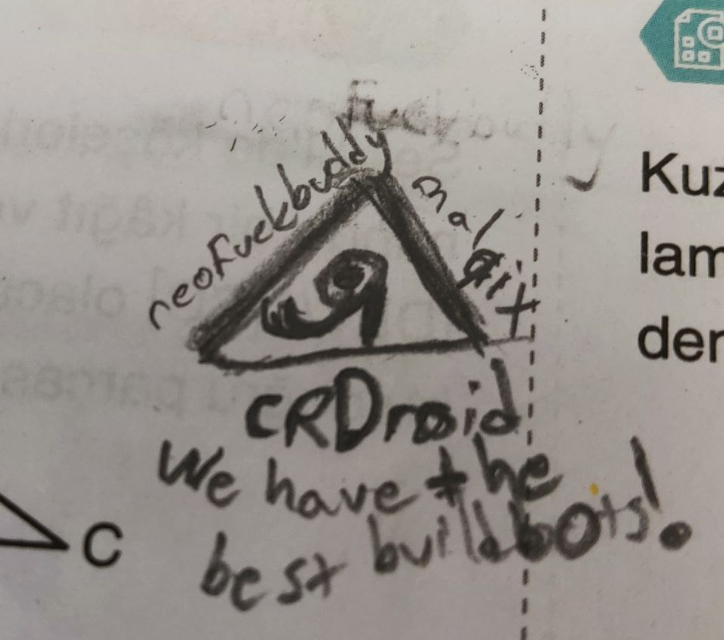 neoFuckbuddy
Balgit
CRDroid
We have the
best buildbots!
Kuz
lam
den
C